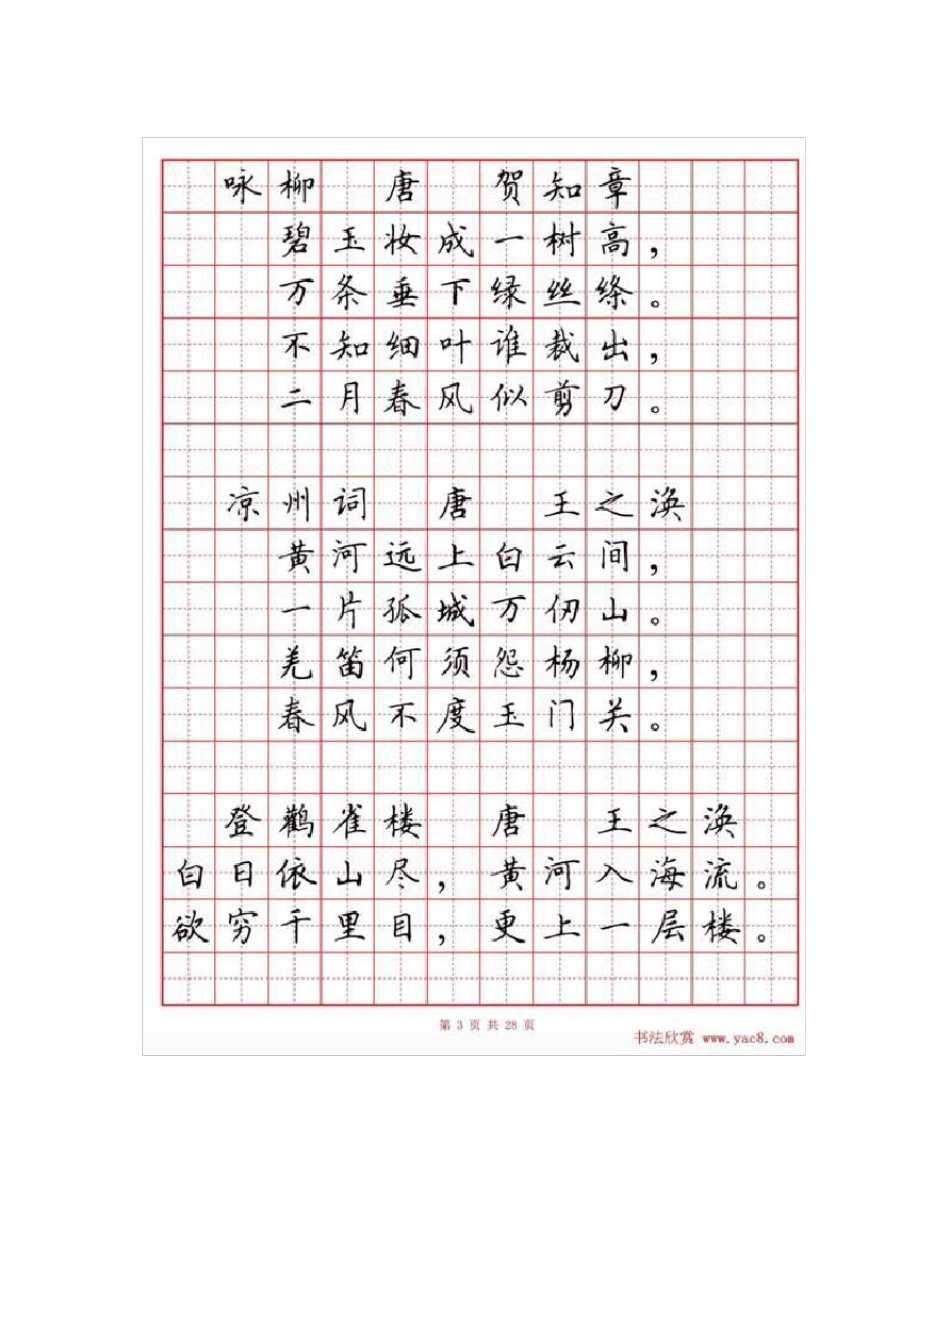 咏柳 唐 贺知章
碧玉妆成一树高，
万条垂下绿丝绦。
不知细叶谁裁出，
二月春风似剪刀。
凉州词 唐 王之涣
黄河远上白云间，
一片孤城万仞山。
羌笛何须怨杨柳，
春风不度玉门关。
登鹳雀楼 唐 王之涣
白日依山尽，黄河入海流。
欲穷千里目，更上一层楼。
第 3 页 共 28 页
书法欣赏 www.yac8.com